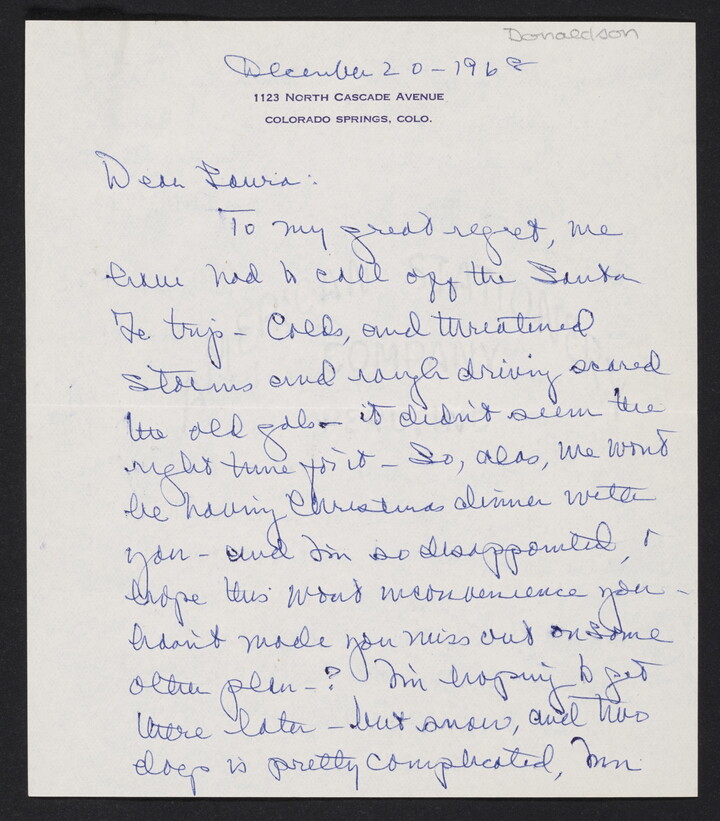 Donaldson
December 20-1968
1123 North Cascade Avenue
Colorado Springs, Colo.
Dear Laura:
To my great regret, we
have had to call off the Santa
Fe trip - Colds, and threatened
storms and rough driving scared
the old gals - it didn't seem the
right time for it - So, alas, we wont
be having Christmas dinner with
you - and I'm so disappointed, I
hope this wont inconvenience you -
hasn't made you miss out on some
other plan -? I'm hoping to get
there later - but snow, and two
dogs is pretty complicated,